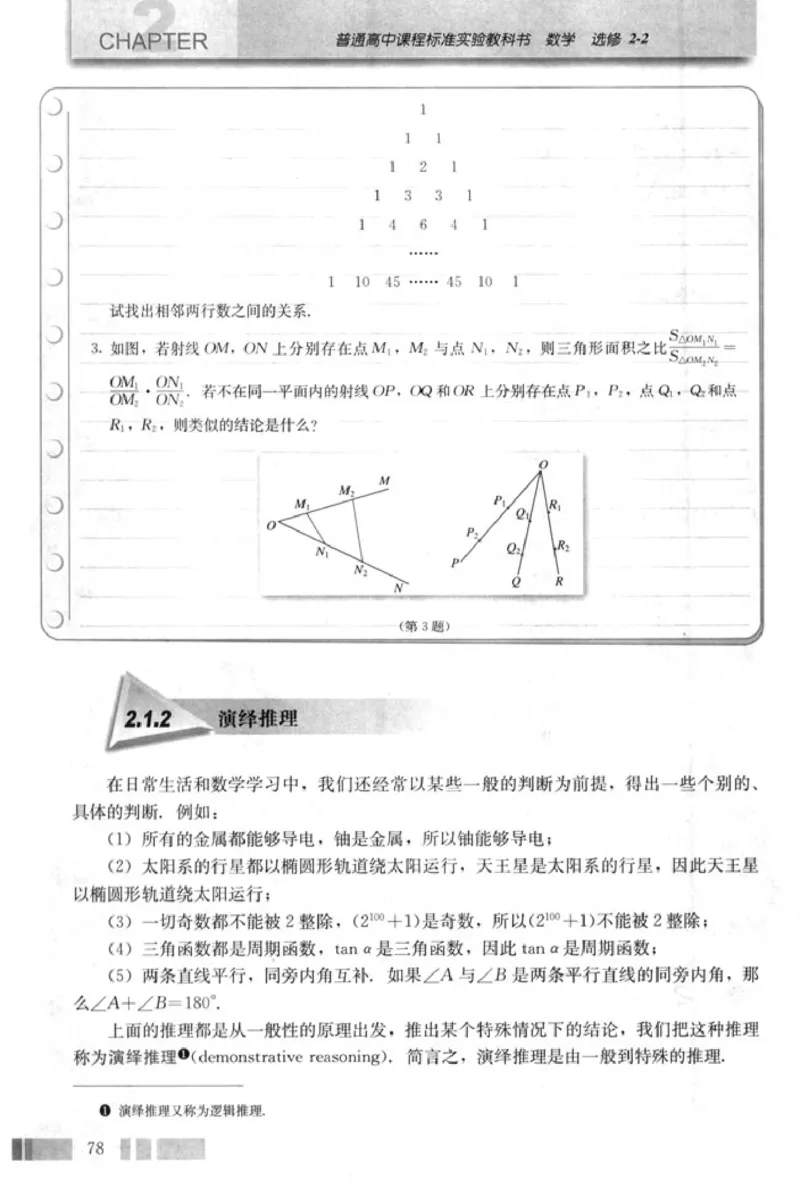 2
CHAPTER
普通高中课程标准实验教科书 数学 选修 2-2
1
1 1
1 2 1
1 3 3 1
1 4 6 4 1
……
1 10 45 …… 45 10 1
试找出相邻两行数之间的关系.
3. 如图，若射线 OM，ON 上分别存在点 M₁，M₂ 与点 N₁，N₂，则三角形面积之比 S△OM₁N₁/S△OM₂N₂ =
OM₁/OM₂ · ON₁/ON₂. 若不在同一平面内的射线 OP，OQ 和 OR 上分别存在点 P₁，P₂，点 Q₁，Q₂ 和点
R₁，R₂，则类似的结论是什么?
O M₁ M₂ M N₁ N₂ N
O P₁ P₂ P Q₁ Q₂ Q R₁ R₂ R
(第 3 题)
2.1.2 演绎推理
在日常生活和数学学习中，我们还经常以某些一般的判断为前提，得出一些个别的、
具体的判断. 例如：
(1) 所有的金属都能够导电，铀是金属，所以铀能够导电；
(2) 太阳系的行星都以椭圆形轨道绕太阳运行，天王星是太阳系的行星，因此天王星
以椭圆形轨道绕太阳运行；
(3) 一切奇数都不能被 2 整除，(2¹⁰⁰+1)是奇数，所以(2¹⁰⁰+1)不能被 2 整除；
(4) 三角函数都是周期函数，tan α 是三角函数，因此 tan α 是周期函数；
(5) 两条直线平行，同旁内角互补. 如果∠A 与∠B 是两条平行直线的同旁内角，那
么∠A+∠B=180°.
上面的推理都是从一般性的原理出发，推出某个特殊情况下的结论，我们把这种推理
称为演绎推理❶(demonstrative reasoning). 简言之，演绎推理是由一般到特殊的推理.
❶ 演绎推理又称为逻辑推理.
78